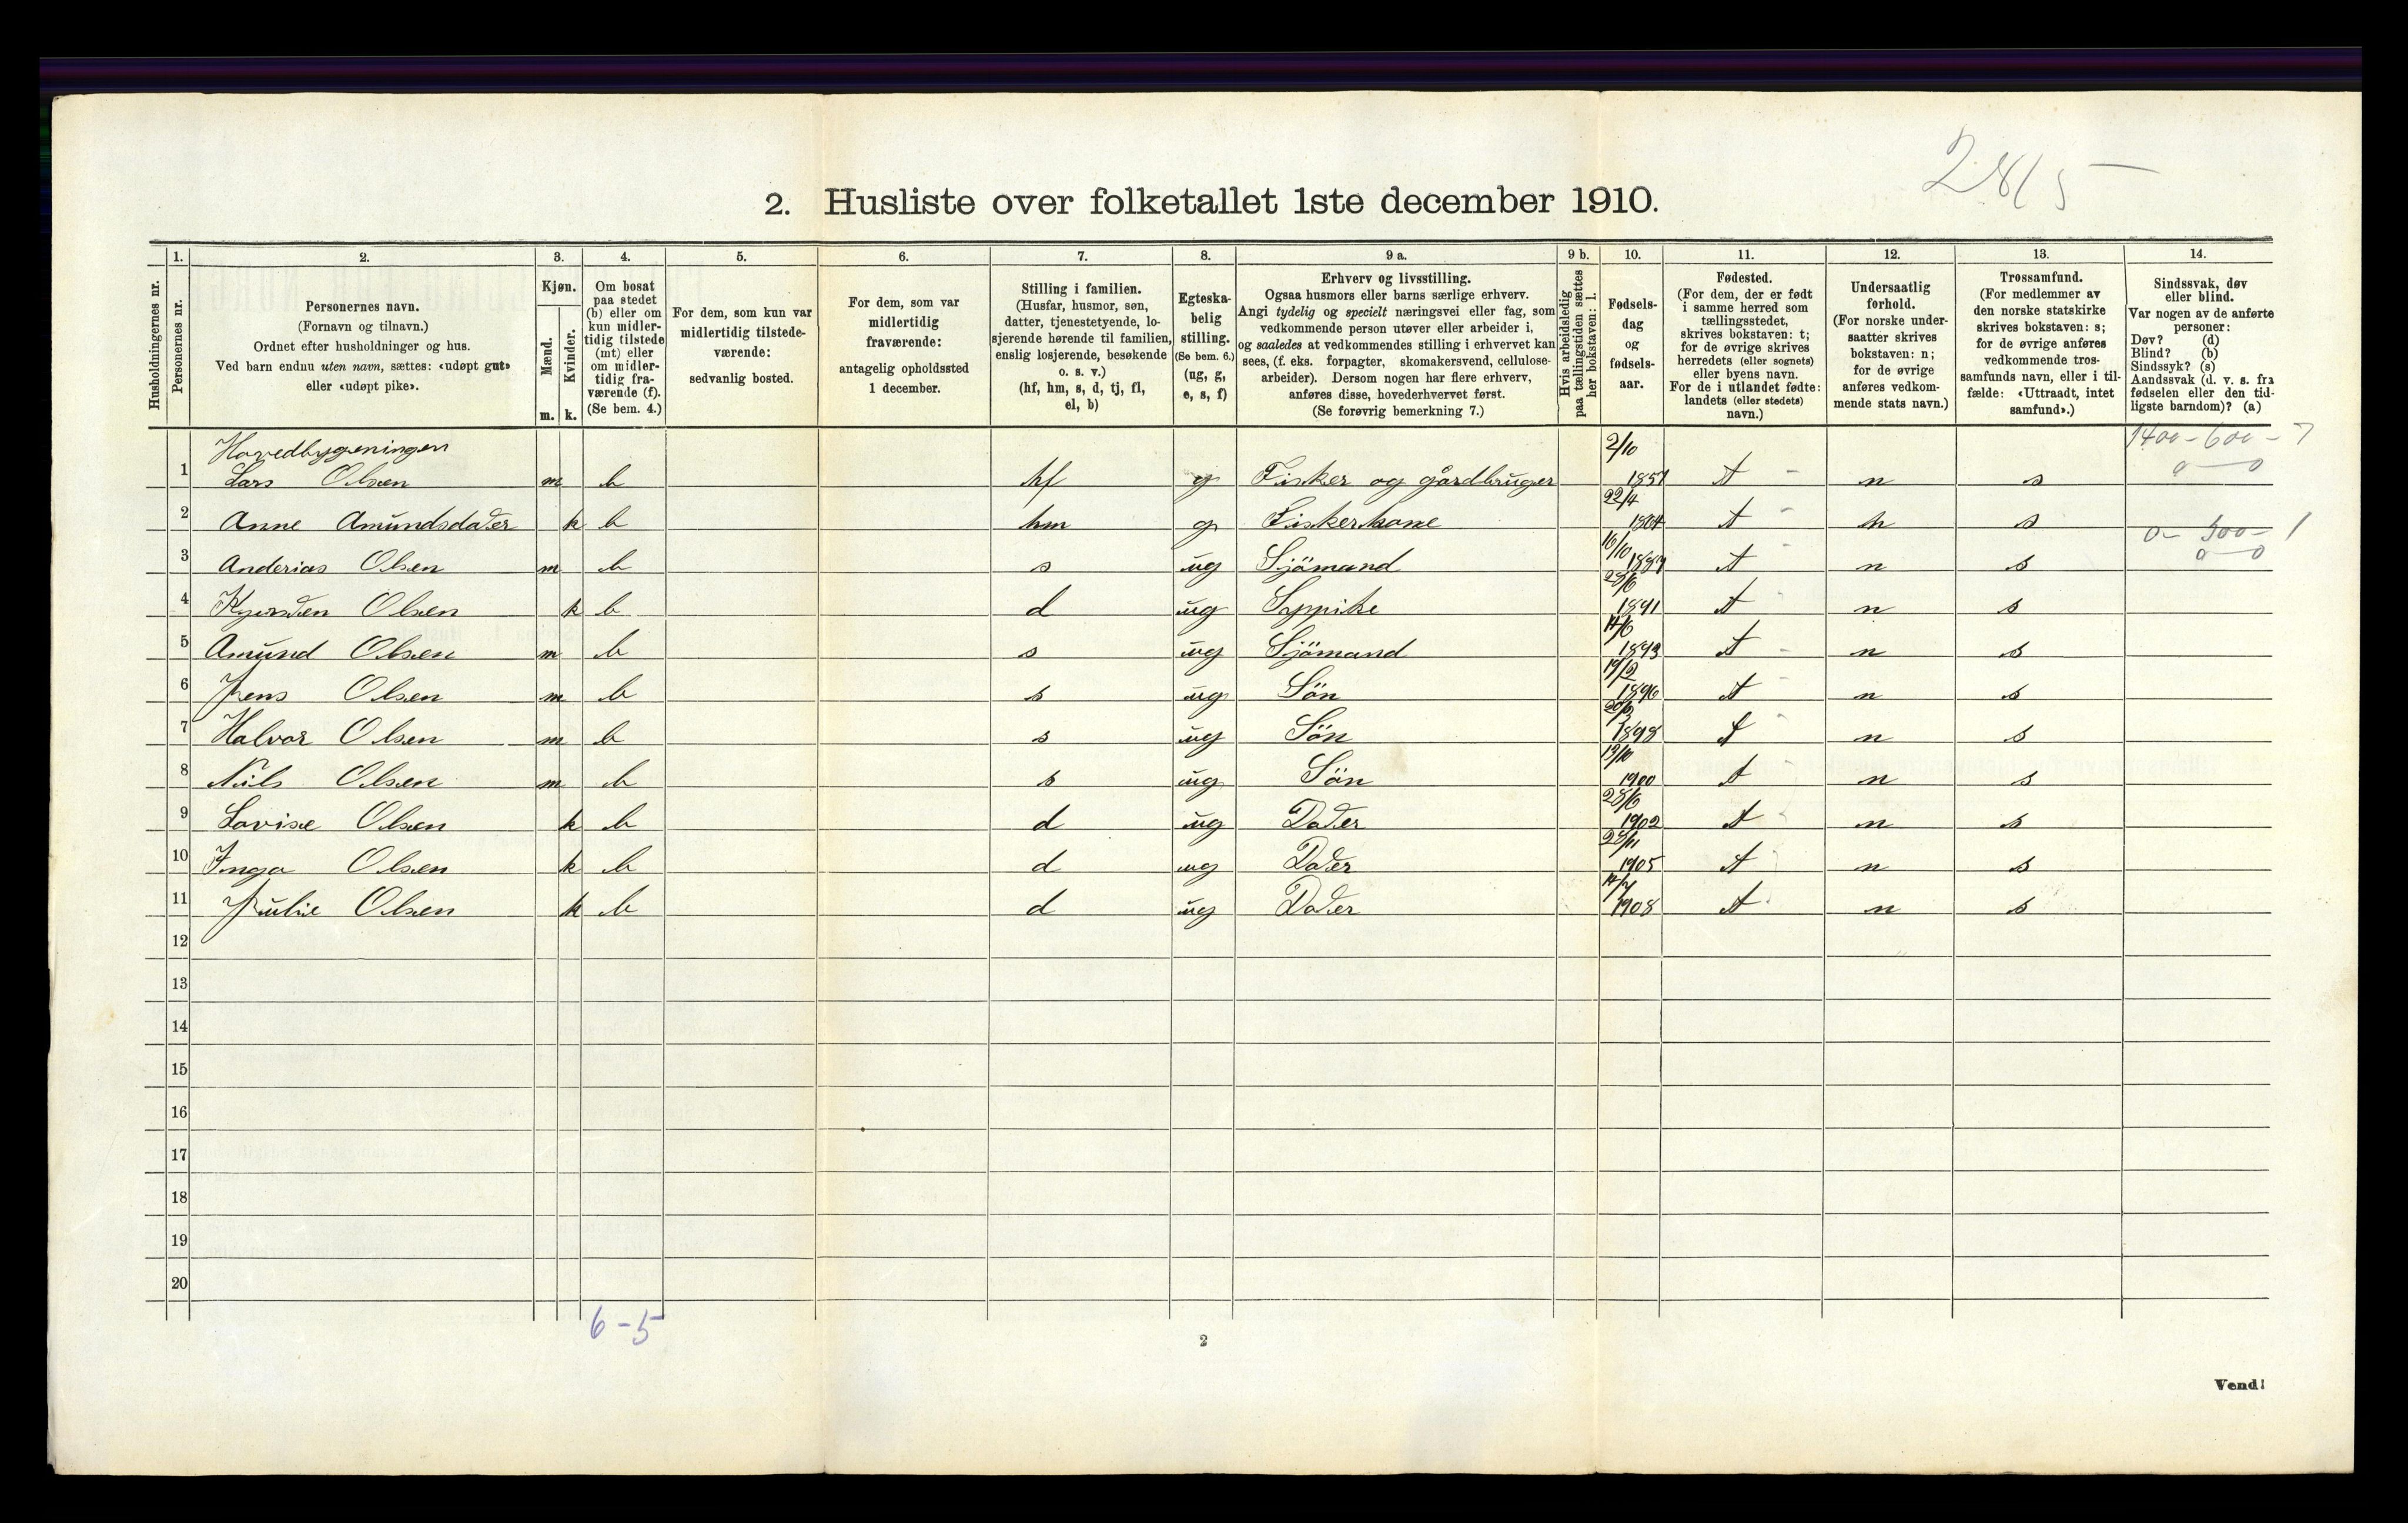 28/5
2. Husliste over folketallet 1ste december 1910.
1. 2. 3. 4. 5. 6. 7. 8. 9 a. 9 b. 10. 11. 12. 13. 14.
Husholdningernes nr.
Personernes nr.
Personernes navn.
(Fornavn og tilnavn.)
Ordnet efter husholdninger og hus.
Ved barn endnu uten navn, sættes: «udøpt gut»
eller «udøpt pike».
Kjøn.
Mænd.
m.
Kvinder.
k.
Om bosat
paa stedet
(b) eller om
kun midler-
tidig tilstede
(mt) eller
om midler-
tidig fra-
værende (f).
(Se bem. 4.)
For dem, som kun var
midlertidig tilstede-
værende:
sedvanlig bosted.
For dem, som var
midlertidig
fraværende:
antagelig opholdssted
1 december.
Stilling i familien.
(Husfar, husmor, søn,
datter, tjenestetyende, lo-
sjerende hørende til familien,
enslig losjerende, besøkende
o. s. v.)
(hf, hm, s, d, tj, fl,
el, b)
Egteska-
belig
stilling.
(Se bem. 6.)
(ug, g,
e, s, f)
Erhverv og livsstilling.
Ogsaa husmors eller barns særlige erhverv.
Angi tydelig og specielt næringsvei eller fag, som
vedkommende person utøver eller arbeider i,
og saaledes at vedkommendes stilling i erhvervet kan
sees, (f. eks. forpagter, skomakersvend, cellulose-
arbeider). Dersom nogen har flere erhverv,
anføres disse, hovederhvervet først.
(Se forøvrig bemerkning 7.)
Hvis arbeidsledig
paa tællingstiden sættes
her bokstaven: l.
Fødsels-
dag
og
fødsels-
aar.
Fødested.
(For dem, der er født
i samme herred som
tællingsstedet,
skrives bokstaven: t;
for de øvrige skrives
herredets (eller sognets)
eller byens navn.
For de i utlandet fødte:
landets (eller stedets)
navn.)
Undersaatlig
forhold.
(For norske under-
saatter skrives
bokstaven: n;
for de øvrige
anføres vedkom-
mende stats navn.)
Trossamfund.
(For medlemmer av
den norske statskirke
skrives bokstaven: s;
for de øvrige anføres
vedkommende tros-
samfunds navn, eller i til-
fælde: «Uttraadt, intet
samfund».)
Sindssvak, døv
eller blind.
Var nogen av de anførte
personer:
Døv? (d)
Blind? (b)
Sindssyk? (s)
Aandssvak (d. v. s. fra
fødselen eller den tid-
ligste barndom)? (a)
Hovedbygeningen 2/10 1400 - 600 - 7
1 Lars Olsen m b hf g Fisker og gårdbruger 1857 t n s 0 - 0
22/4
2 Anne Amundsdater k b hm g Fiskerkone t n s 0 - 500 - 1
16/10 0 - 0
3 Anderias Olsen m b s ug Sjömand t n s
28/6
4 Olsen k b d ug 1891 t n s
5 Amund Olsen m b s ug Sjömand 1893 t n s
6 Jens Olsen m b s ug Sön 1896 t n s
7 Halvor Olsen m b s ug Sön 1898 t n s
13/10
8 Nils Olsen m b s ug Sön 1900 t n s
28/6
9 Lovise Olsen k b d ug Dater 1902 t n s
28/11
10 Inga Olsen k b d ug Dater 1905 t n s
11 Julie Olsen k b d ug Dater 1908 t n s
12
13
14
15
16
17
18
19
20
6 - 5
2
Vend!